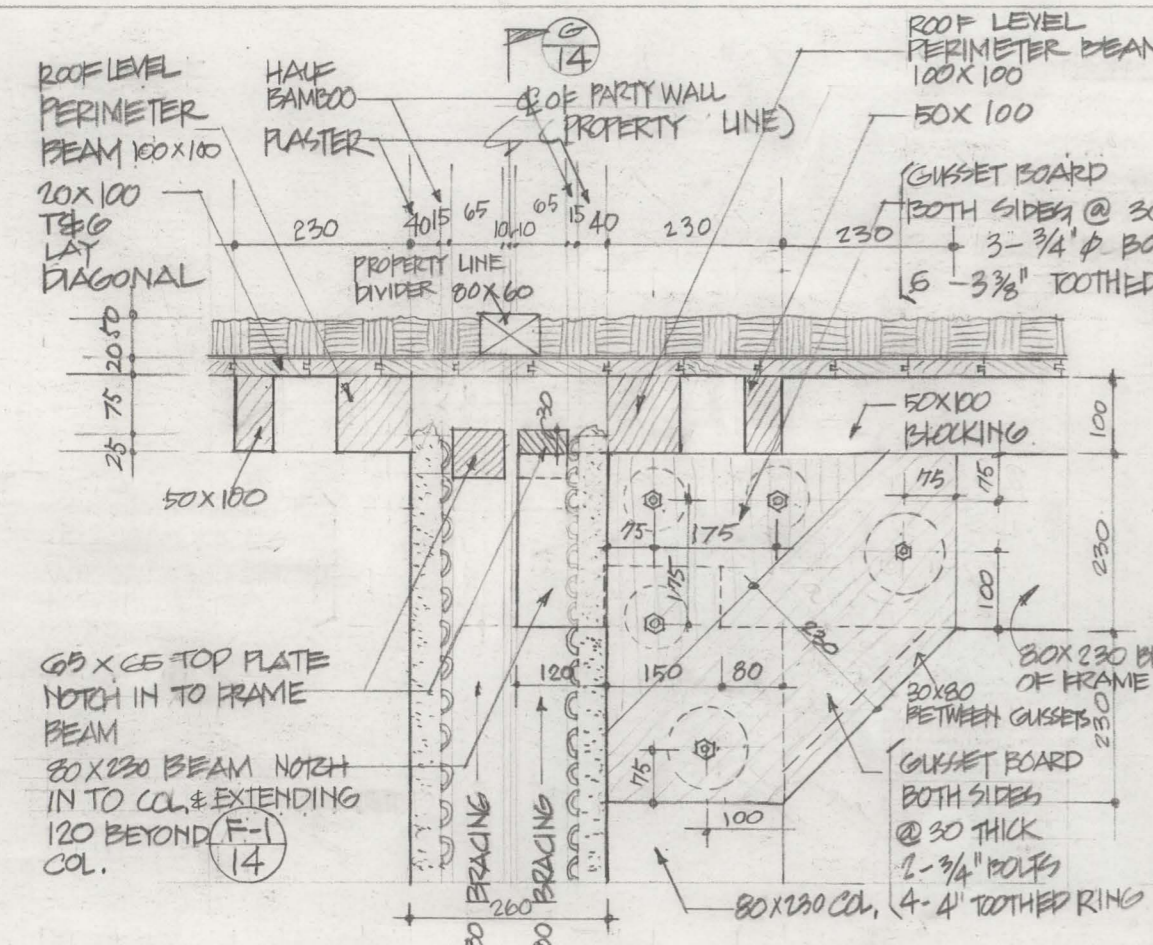 ROOF LEVEL
PERIMETER
BEAM 100X100
20X100
T&G
LAY
DIAGONAL
HALF
BAMBOO
PLASTER
G
14
℄ OF PARTY WALL
PROPERTY LINE)
ROOF LEVEL
PERIMETER BEAM
100X100
50X100
GUSSET BOARD
BOTH SIDES @ 30
3-3/4" Ø BO
6 -3 3/8" TOOTHED
230 40 15 65 10 10 65 15 40 230 230
PROPERTY LINE
DIVIDER 80X60
50
20
75
25
30
50X100
BLOCKING
100
50X100
75 75
75 175
175
100
230
230
65 X 65 TOP PLATE
NOTCH IN TO FRAME
BEAM
80X230 BEAM NOTCH
IN TO COL. & EXTENDING
120 BEYOND
COL.
F-1
14
120 150 80
80X230 BE
OF FRAME
30X80
BETWEEN GUSSETS
230
75
100
GUSSET BOARD
BOTH SIDES
@ 30 THICK
2-3/4" BOLTS
4-4" TOOTHED RING
BRACING
BRACING
260
80X230 COL.